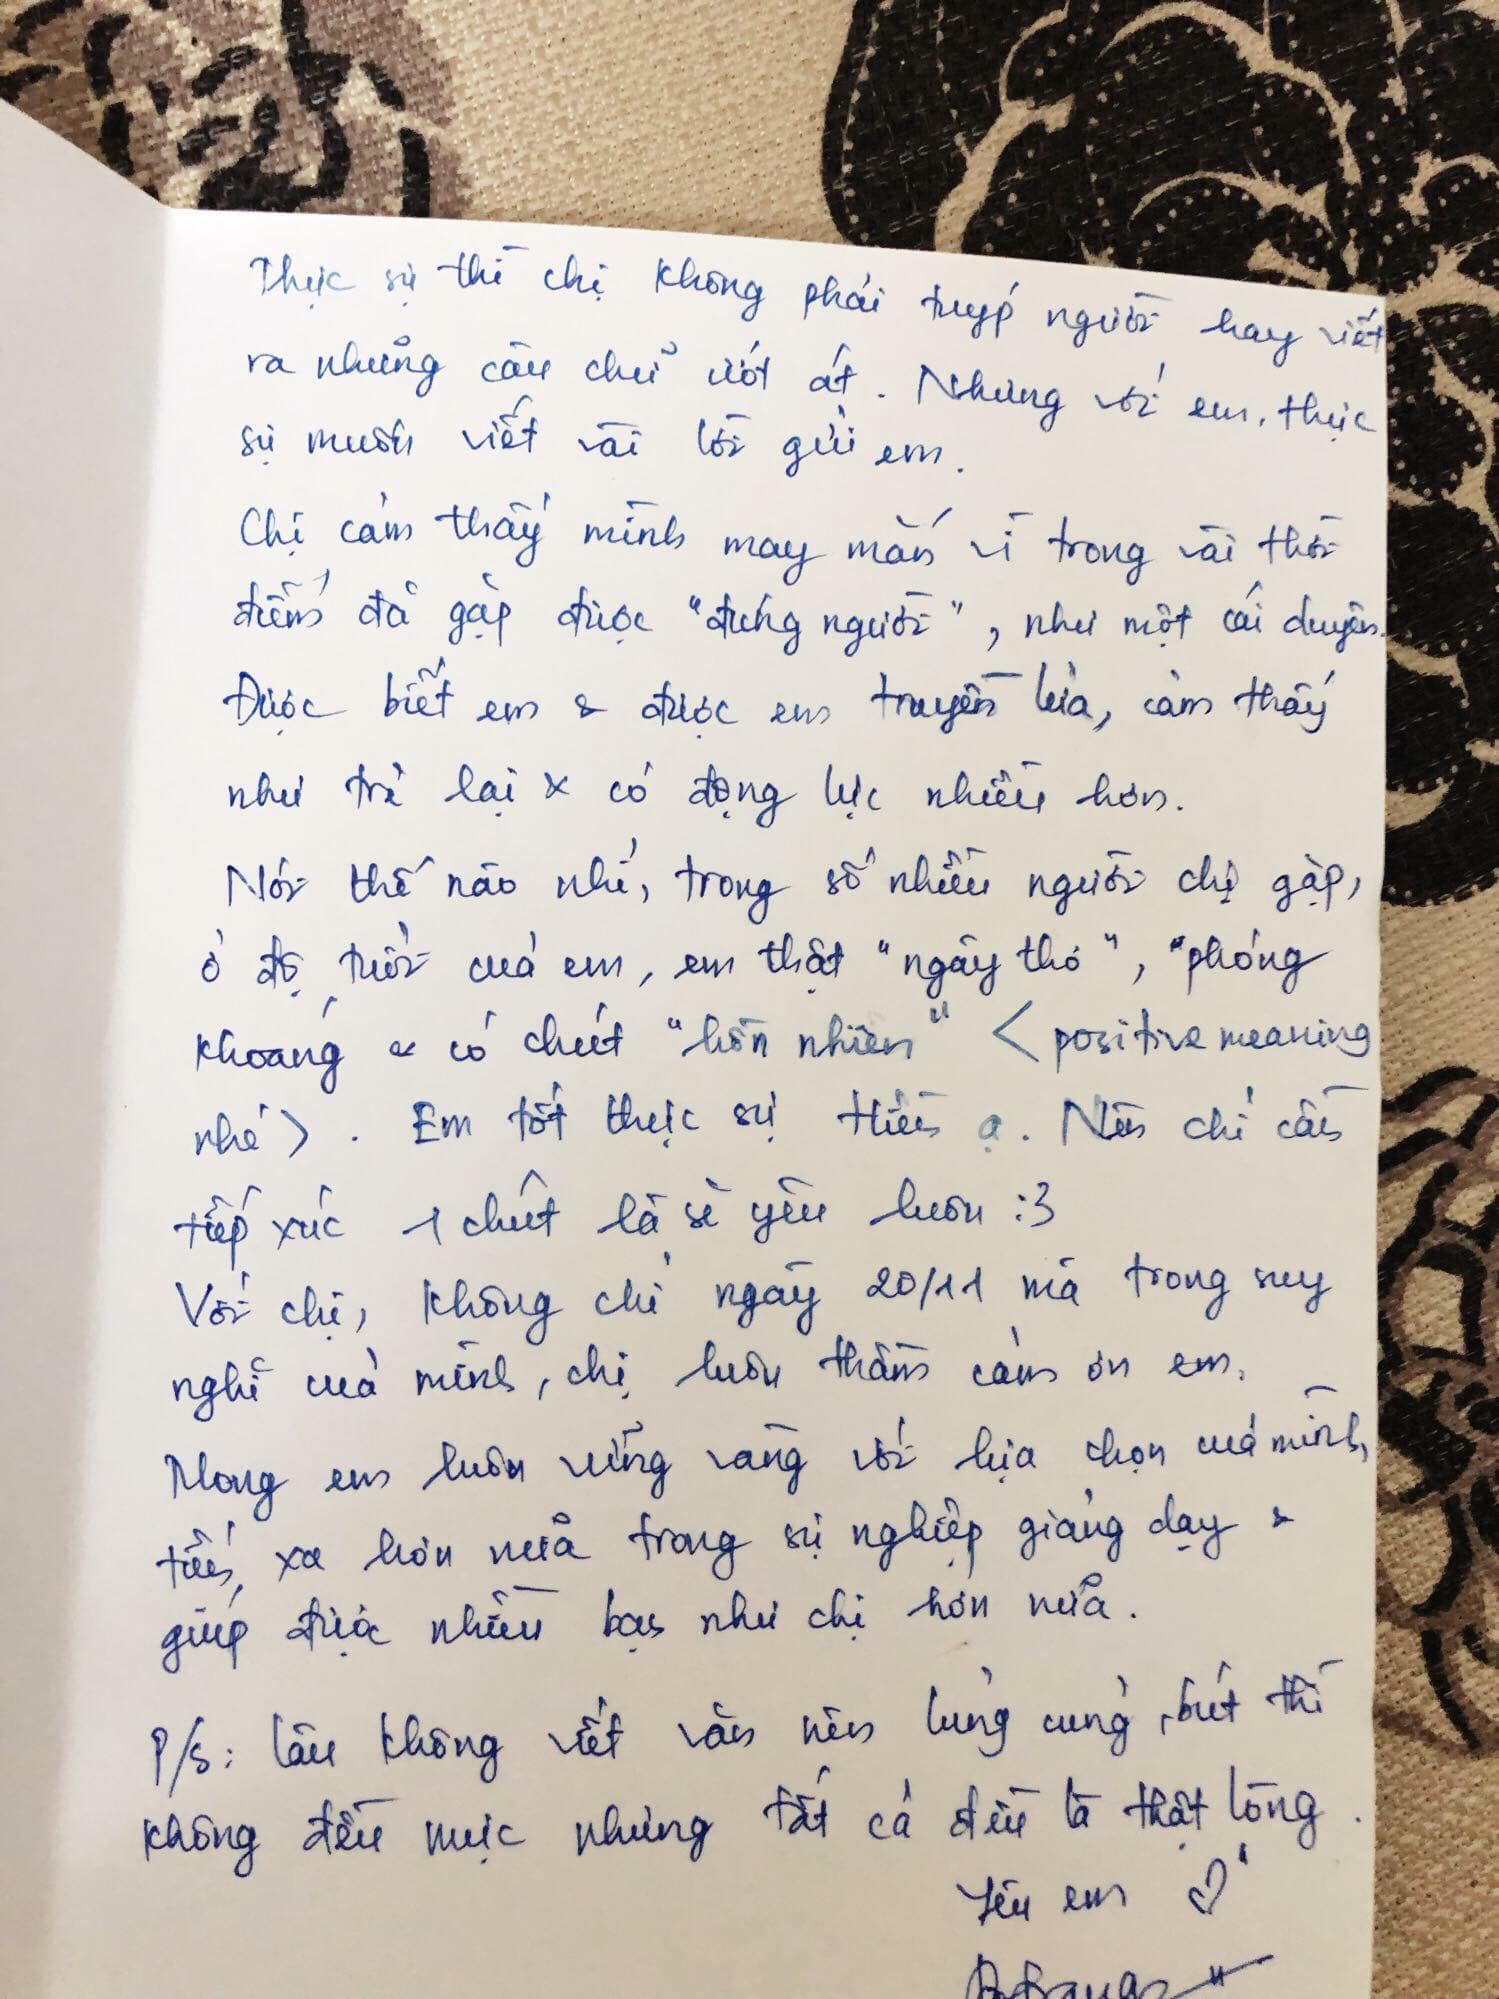 Thực sự thì chị không phải tuýp người hay viết
ra những câu chữ ướt át. Nhưng với em, thực
sự muốn viết vài lời gửi em.
Chị cảm thấy mình may mắn vì trong vài thời
điểm đã gặp được "đúng người", như một cái duyên.
Được biết em & được em truyền lửa, cảm thấy
như trẻ lại & có động lực nhiều hơn.
Nói thế nào nhỉ, trong số nhiều người chị gặp,
ở độ tuổi của em, em thật "ngây thơ", "phóng
khoáng & có chút "hồn nhiên" <positive meaning
nhé>. Em tốt thực sự luôn ạ. Nên chỉ cần
tiếp xúc 1 chút là sẽ yêu luôn :3
Với chị, không chỉ ngày 20/11 mà trong suy
nghĩ của mình, chị luôn thầm cảm ơn em.
Mong em luôn vững vàng với lựa chọn của mình,
tiến xa hơn nữa trong sự nghiệp giảng dạy &
giúp được nhiều bạn như chị hơn nữa.
P/s: lâu không viết văn nên lủng củng, bút thì
không đều mực nhưng tất cả đều là thật lòng.
Yêu em ♡